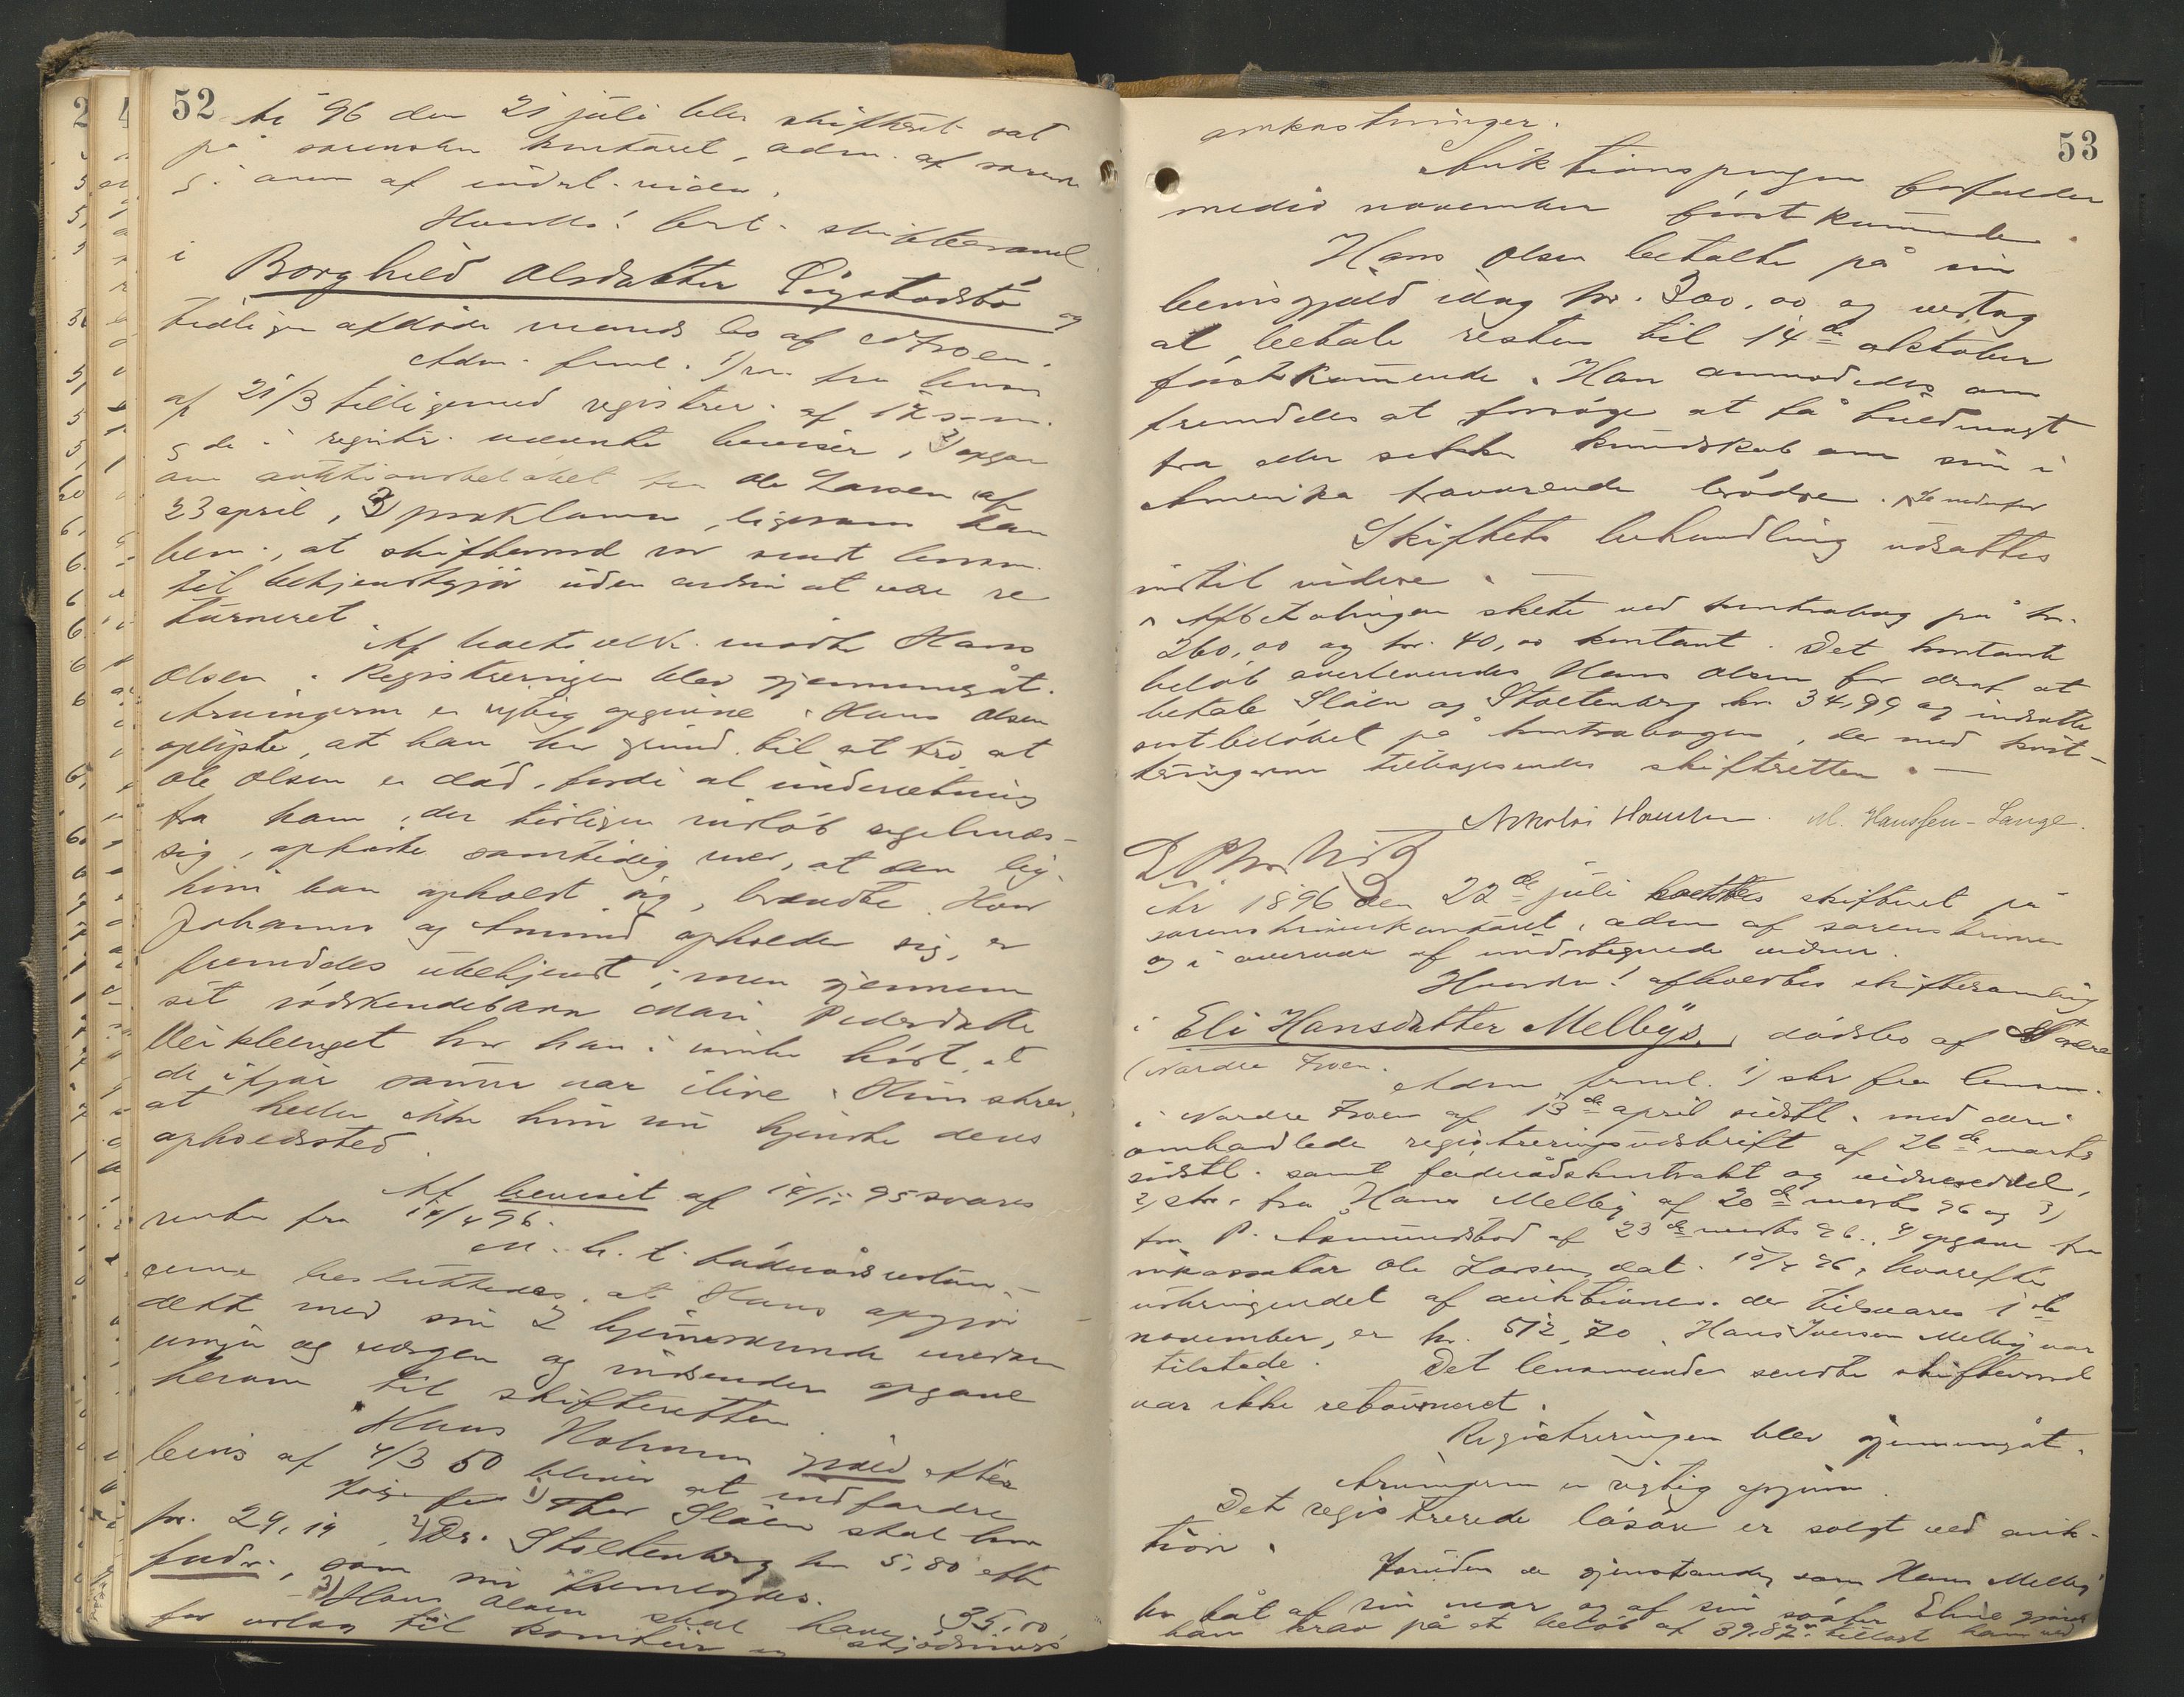 52
År 96 den 21 juli blev skifteret sat
på sorenskr kontoret, adm. af sorenskr
g i overv af undert. vidner.
Hvorda! ber. skiftesaml.
i
Borghild Olsdatter Sigstadsbø og
tidligere afdøde mands bo af Froen.
Adm. freml. 1) skr. fra lensm
af 21/3 tilligemed registrer. af 17 s.m.
g de i registr. nævnte beviser, 2) opgav
over auktionsbeløbet fra Ole Larsen af
23 april, 3) proklama, ligesom han
bem., at skifterord var sendt lensm.
til bekjendtgjør uden endnu at være re
turneret
Af boets vedk. mødte Hans
Olsen. Registreringen blev gjennemgåt.
Arvingerne er rigtig opgivne. Hans Olsen
oplyste, at han har grund til at tro, at
Ole Olsen er død, fordi al underretning
fra ham, der tidligere indløb regelmæs-
sig, ophørte samtidig med, at den by,
hvori han opholdt sig, brændte. Hvor
Johannes og Amund opholder sig, er
fremdeles ubekjendt; men gjennem
sit søskendebarn Mari Pedersdatter
Veikleenget har han i vinter hørt, at
de ifjor sommer var ilive. Hun skrev,
at heller ikke hun nu kjendte deres
opholdssted.
Af beviset af 14/11 95 svares
renter fra 14/4 96.
M. h. t. føderådsrestan-
cerne besluttedes, at Hans opgjør
dette med sin 2 hjemværende
umyn og værgen og indsender opgave
herom til skifteretten
Hans Holmen gjæld efter
bevis af 4/3 50 bliver at indfordre
1) Thor Slåen skal have
kr. 29,19, 2) Dr. Stoltenberg kr 5,80 efter
fødr., som nu fremlagdes.
3) Hans Olsen skal have 35,00
for utlæg til
53
omkostninger.
Auktionspengene forfalder
medio november førstkommende.
Hans Olsen betalte på sin
bevisgjæld idag kr. 300,00 og vedtog
at betale resten til 14de oktober
førstkommende. Han anmodedes om
fremdeles at forsøge at få fuldmagt
fra eller sikker kundskab om sin i
Amerika fraværende brødre. se nedenfor
Skiftets behandling udsattes
indtil videre. —
Afbetalingen skete ved kontrabog på kr.
260,00 og kr. 40,00 kontant. Det kontante
beløb overlevertes Hans Olsen for deraf at
betale Slåen og Stoltenberg kr 34,99 og indsætte
restbeløbet på kontrabogen, der med kvit-
teringerne tilbagesendes skifteretten. —
Nikolai Haugen. M. Hanssen-Lange.
År 1896 den 22de juli holdtes skifteret på
sorenskriverkontoret, adm af sorenskriveren
og i overvær af undertegnede vidner.
Hvorda! afholdtes skiftesamling
i Eli Hansdatter Melbys, dødsbo af
Nordre Froen.
Adm freml. 1) skr fra lensm.
i Nordre Froen af 13de april sidstl. med deri
omhandlede registreringsudskrift af 26de marts
sidstl. samt føderådskontrakt og vidneseddel,
2) skr. fra Hans Melby af 20de marts 96 og 3)
fra P. Åmundsbod af 23de marts 96., 4) opgave fra
inkassator Ole Larsen, dat. 10/7 96, hvorefter
udbringendet af auktionen. der tilsvares 1ste
november, er kr. 512,70. Hans Iversen Melby var
tilstede. Det lensmanden sendte skifterord
var ikke returneret.
Registreringen blev gjennemgåt.
Arvingerne er rigtig opgivne.
Det registrerede løsøre er solgt ved auk-
tion.
Foruden de gjenstande, som Hans Melby
har fåt af sin mor og af sin søster Eline gjøres
ham krav på et beløb af 39,87